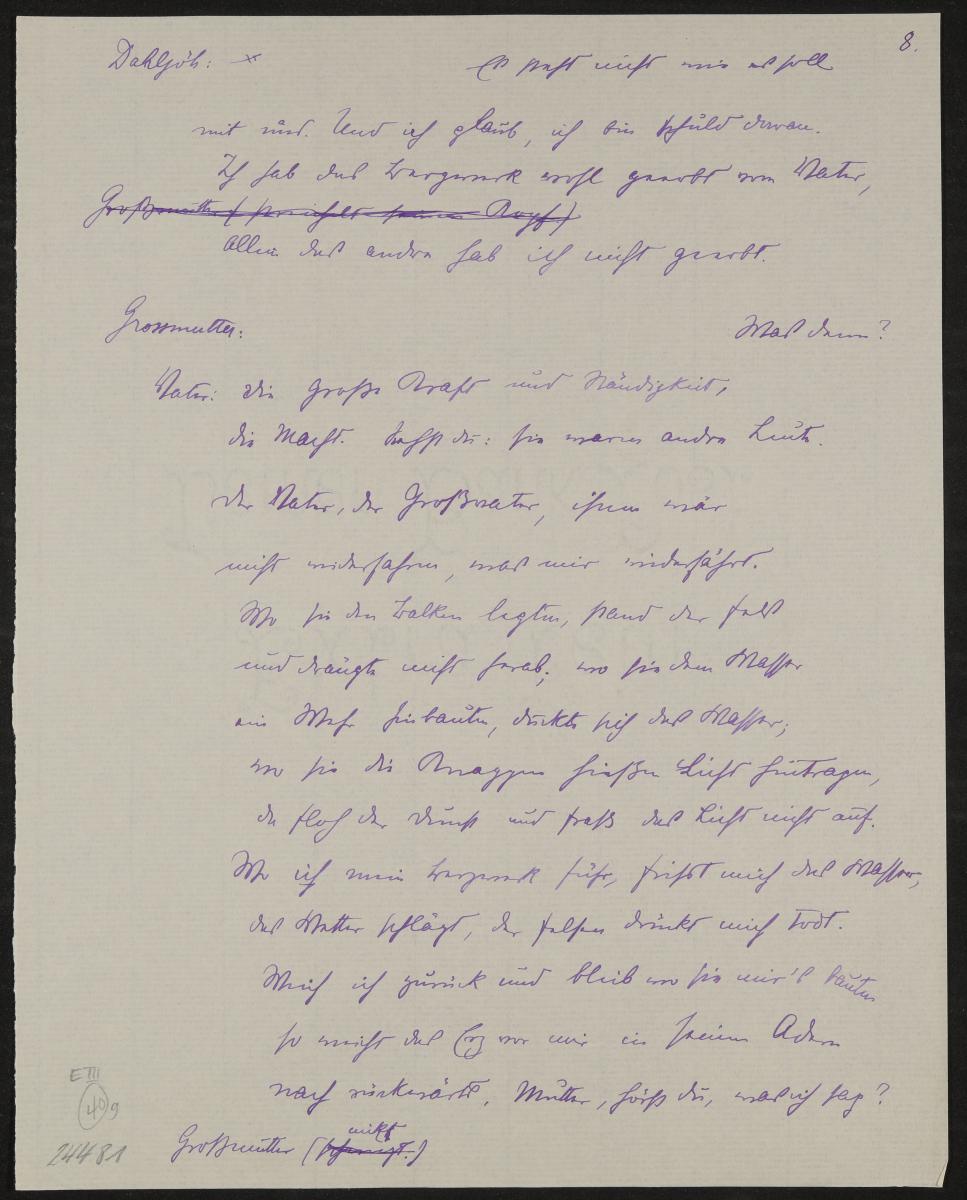 8.
Dahljöh: × Es steht nicht wie es soll
mit uns. Und ich glaub, ich bin schuld daran.
Ich hab das Bergwerk wohl geerbt vom Vater,
Großmutter (streichelt seinen Kopf)
Allein das andre hab ich nicht geerbt.
Grossmutter: Was denn?
Vater: die große Kraft und Ständigkeit,
die Macht. Siehst du: sie waren andre Leute.
Der Vater, der Großvater, ihnen wär
nicht widerfahren, was mir widerfährt.
Wo sie den Balken legten, stand der Fels
und drängte nicht herab; wo sie dem Wasser
ein Wehr hinbauten, duckte sich das Wasser;
wo sie die Knappen hießen Licht hintragen,
da floh der Dunst und fraß das Licht nicht auf.
Wo ich mein Bergwerk führ, frißt mich das Wasser,
das Wetter schlägt, der Felsen drückt mich todt.
Weich ich zurück und bleib wo sie mir's bauten
so weicht das Erz vor mir in seinen Adern
nach rückwärts. Mutter, hörst du, was ich sag?
Großmutter (schweigt.) nickt
E III
40 9
24481